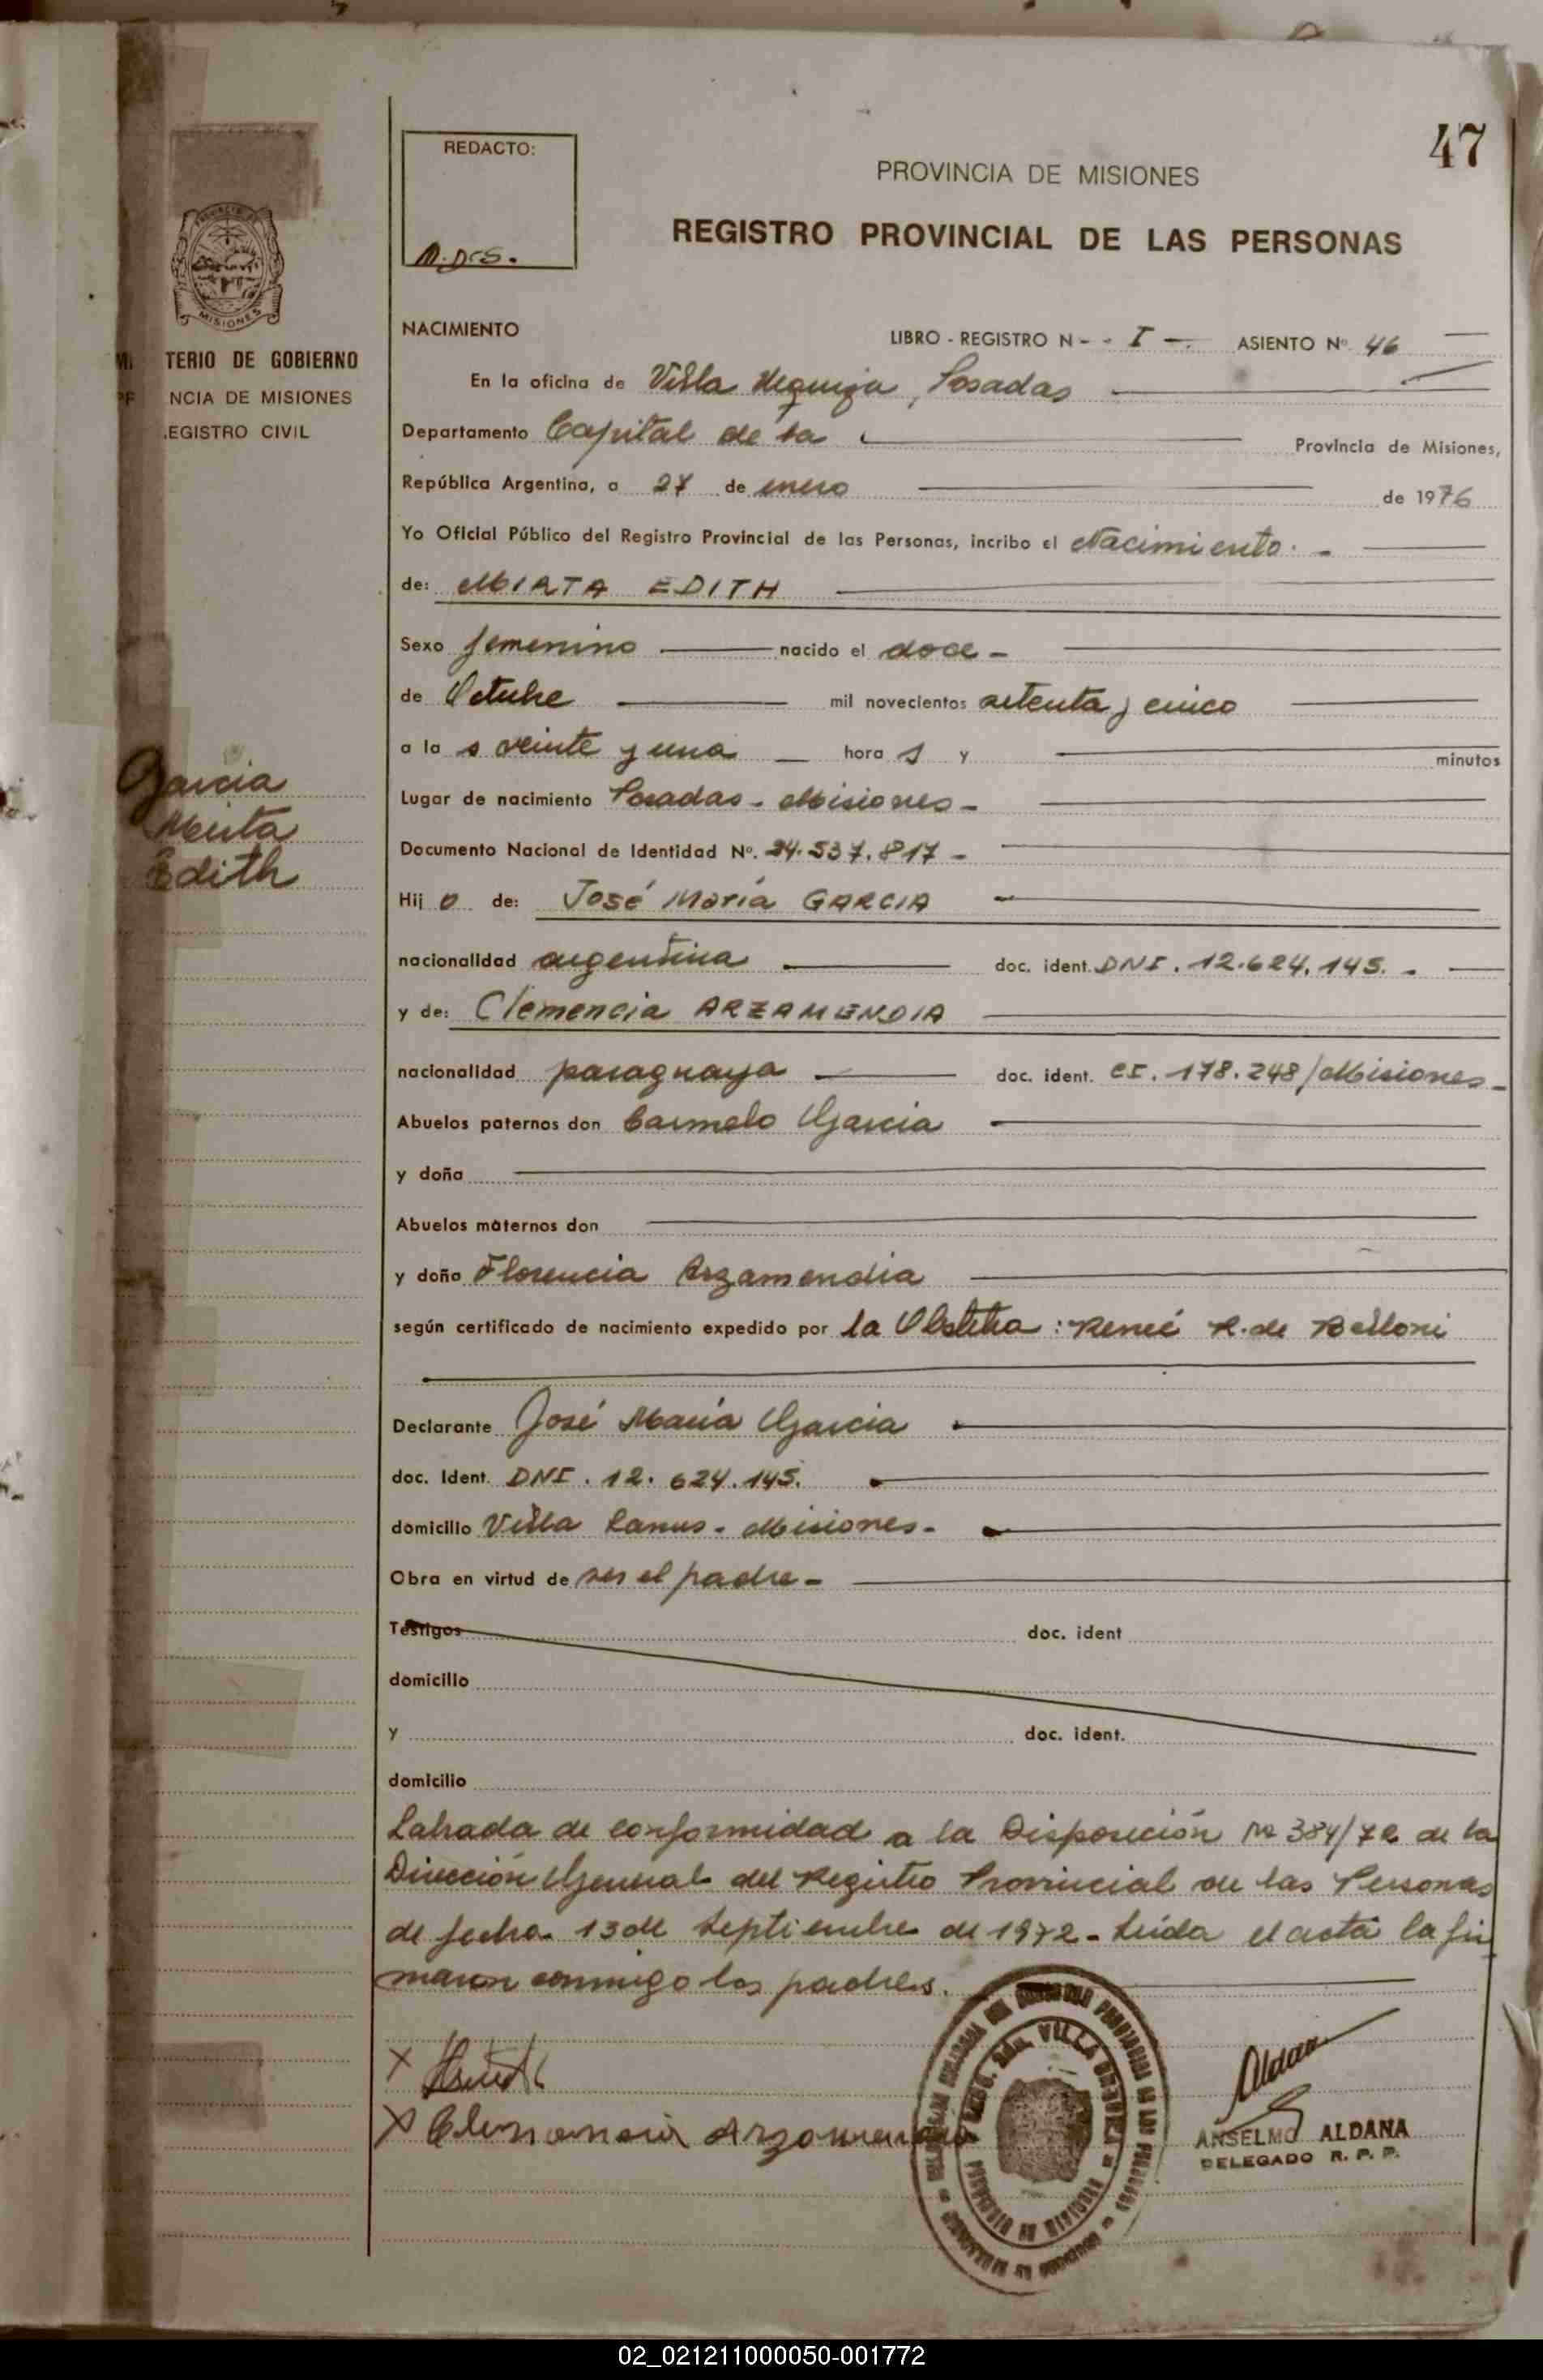 47
REDACTO:
PROVINCIA DE MISIONES
REGISTRO PROVINCIAL DE LAS PERSONAS
MISIONES
TERIO DE GOBIERNO
NCIA DE MISIONES
EGISTRO CIVIL
NACIMIENTO LIBRO - REGISTRO N - - I - . ASIENTO Nº 46
En la oficina de Villa Urquiza, Posadas
Departamento Capital de la Provincia de Misiones,
República Argentina, a 27 de enero de 1976
Yo Oficial Público del Registro Provincial de las Personas, incribo el Nacimiento. -
de: MIRTA EDITH
Sexo femenino nacido el doce -
de Octubre mil novecientos setenta y cinco
a la s veinte y una hora s y minutos
García
Mirta
Edith
Lugar de nacimiento Posadas - Misiones -
Documento Nacional de Identidad Nº. 24.537.817 -
Hij o de: José María GARCIA
nacionalidad argentina doc. ident. DNI. 12.624.145. -
y de: Clemencia ARZAMENDIA
nacionalidad paraguaya doc. ident. CI. 178.248/Misiones -
Abuelos paternos don Carmelo García
y doña
Abuelos maternos don
y doña Florencia Arzamendia
según certificado de nacimiento expedido por la Obstetra: Reneé R. de Belloni
Declarante José María García
doc. Ident. DNI. 12.624.145.
domicilio Villa Lanus - Misiones -
Obra en virtud de ser el padre -
Testigos doc. ident
domicilio
y doc. ident.
domicilio
Labrada de conformidad a la Disposición nº 384/72 de la
Dirección General del Registro Provincial de las Personas
de fecha 13 de Septiembre de 1972 - Leída el acta la fir
maron conmigo los padres.
X
X Clemencia Arzamendia
VILLA URQUIZA
PROVINCIA DE MISIONES
Aldana
ANSELMO ALDANA
DELEGADO R. P. P.
02_021211000050-001772